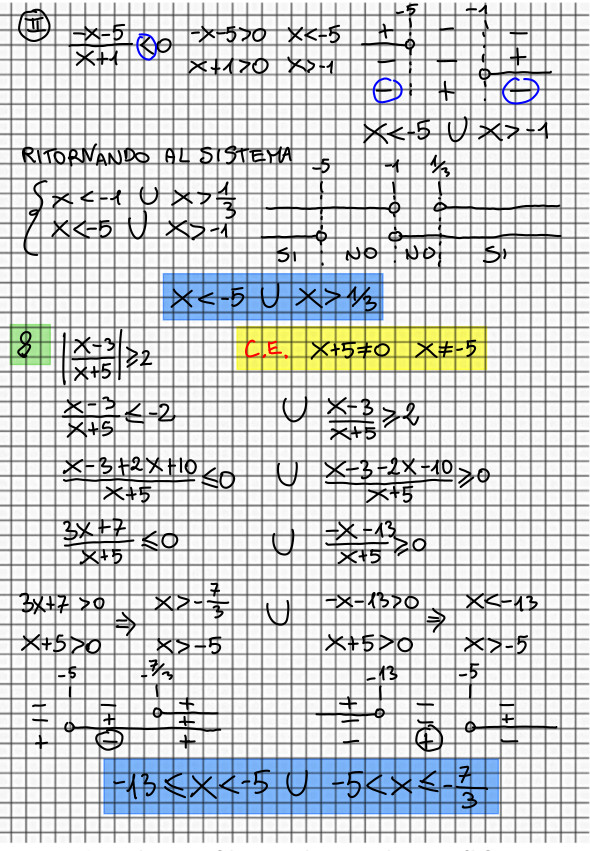 III  (-x-5)/(x+1) < 0  -x-5>0  x<-5
x+1>0  x>-1
-5  -1
+ - -
- - +
- + -
x<-5 ∪ x>-1
RITORNANDO AL SISTEMA
{ x<-1 ∪ x>1/3
x<-5 ∪ x>-1
-5  -1  1/3
SI NO NO SI
x<-5 ∪ x>1/3
8  |(x-3)/(x+5)| ≥ 2  C.E. x+5≠0  x≠-5
(x-3)/(x+5) ≤ -2 ∪ (x-3)/(x+5) ≥ 2
(x-3+2x+10)/(x+5) ≤ 0 ∪ (x-3-2x-10)/(x+5) ≥ 0
(3x+7)/(x+5) ≤ 0 ∪ (-x-13)/(x+5) ≥ 0
3x+7>0 ⇒ x>-7/3 ∪ -x-13>0 ⇒ x<-13
x+5>0  x>-5  x+5>0  x>-5
-5  -7/3  -13  -5
- - +  + - -
- + +  - - +
+ - +  - + -
-13≤x<-5 ∪ -5<x≤-7/3